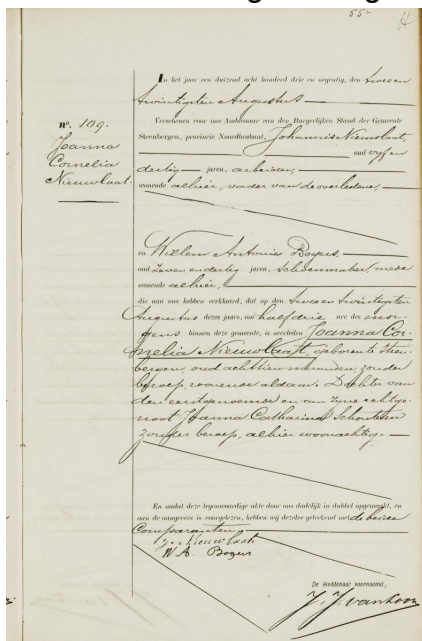 55
In het jaar een duizend acht honderd drie en negentig, den twee en
twintigsten Augustus
Verschenen voor ons Ambtenaar van den Burgerlijken Stand der Gemeente
Steenbergen, provincie Noordbrabant, Johannis Nieuwlaat,
oud vijf en
dertig jaren, arbeider,
wonende alhier, vader van de overledene,
n°. 109.
Joanna
Cornelia
Nieuwlaat.
en Willem Antonie Bogers,
oud zeven en dertig jaren, schoenmaker, mede
wonende alhier,
die aan ons hebben verklaard, dat op den twee en twintigsten
Augustus dezes jaars, om half drie ure des mor-
gens binnen deze gemeente, is overleden Joanna Cor-
nelia Nieuwlaat, geboren te Steen-
bergen, oud achttien maanden, zonder
beroep, wonende aldaar. Dochter van
den eerstgenoemde en van zijne echtge-
noot Johanna Catharina Schouteren
zonder beroep, alhier woonachtig.
En nadat deze tegenwoordige akte door ons dadelijk in dubbel opgemaakt, en
aan de aangevers is voorgelezen, hebben wij dezelve geteekend met de beide
Comparanten
J. Nieuwlaat
W A Bogers
De Ambtenaar voornoemd,
J. J. van Loon